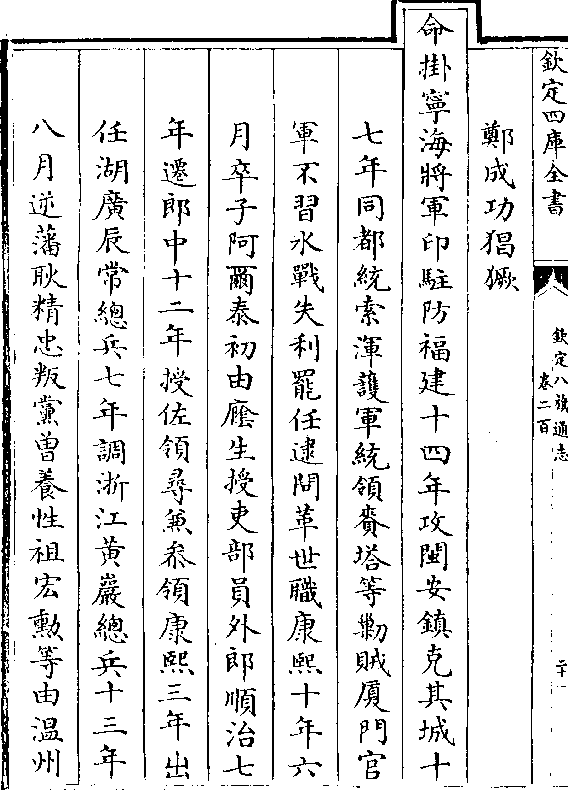 欽定四庫全書
欽定八旗通志
卷二百
二十一
鄭成功猖獗
命掛寧海將軍印駐防福建十四年攻閩安鎮克其城十
七年同都統索渾護軍統領賚塔等勦賊厦門官
軍不習水戰失利罷任逮問革世職康熙十年六
月卒子阿爾泰初由廕生授吏部員外郎順治七
年遷郎中十二年授佐領尋兼叅領康熙三年出
任湖廣辰常總兵七年調浙江黃巖總兵十三年
八月逆藩耿精忠叛黨曾養性祖宏勳等由温州